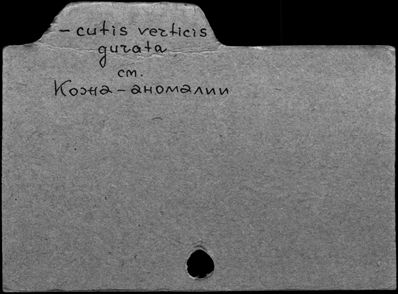 - cutis verticis
gurata
см.
Кожа - аномалии